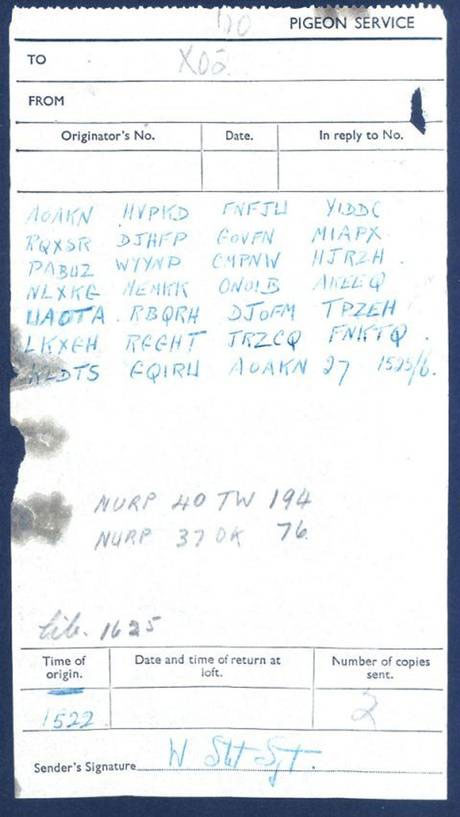 PIGEON SERVICE
TO X02
FROM
Originator's No. Date. In reply to No.
AOAKN HVPKD FNFJU YIDDC
RQXSR DJHFP GOVFN MIAPX
PABUZ WYYNP CMPNW HJRZH
NLXKG MEMKK ONOIB AKEEQ
UAOTA RBQRH DJOFM TPZEH
LKXGH RGGHT JRZCQ FNKTQ
KLDTS GQIRU AOAKN 27 1525/6.
NURP 40 TW 194
NURP 37 OK 76
lib. 1625
Time of origin. Date and time of return at loft. Number of copies sent.
1522 2
Sender's Signature W Stot Sjt.